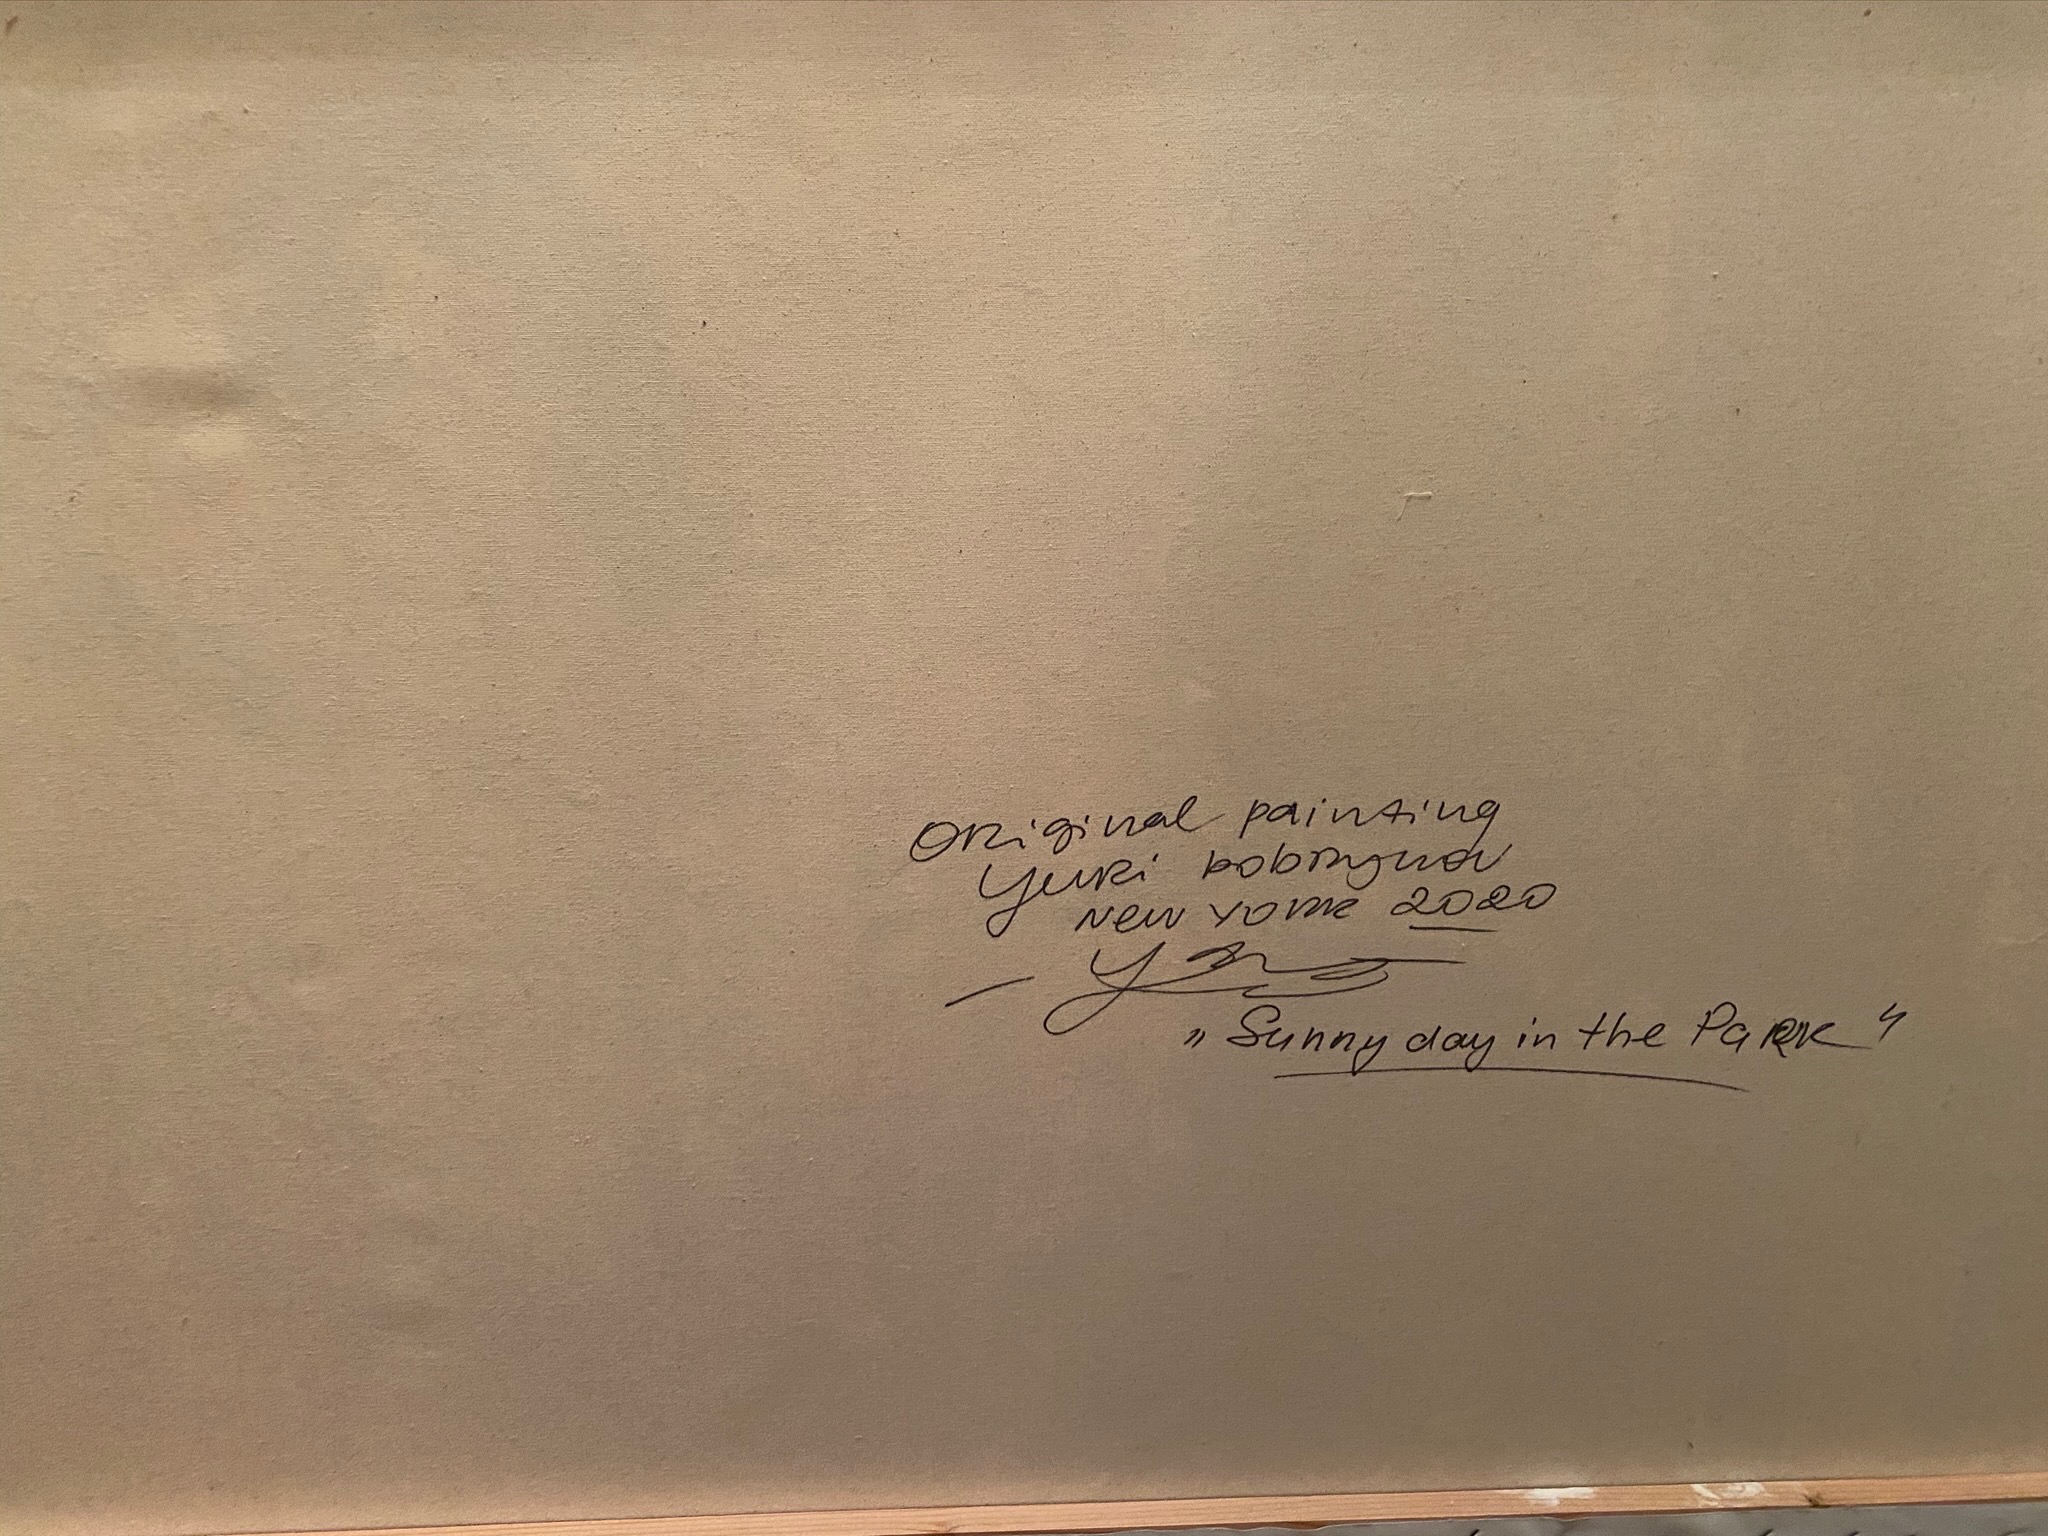 Original painting
Yuri bobrynov
New York 2020
„Sunny day in the Park"